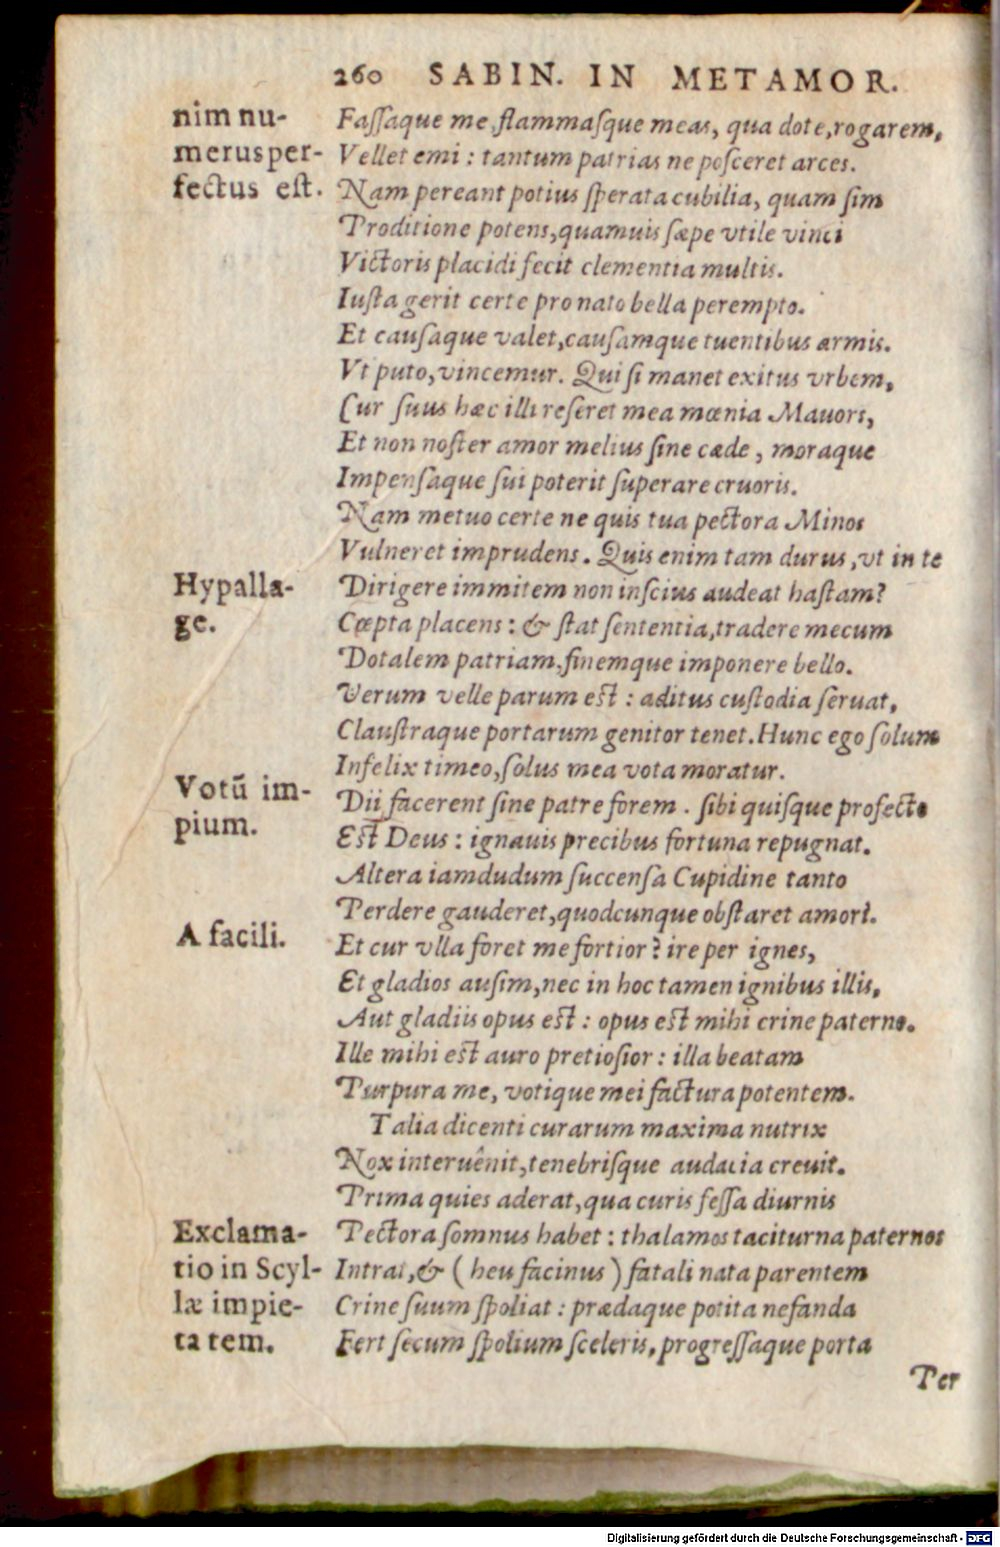 260 SABIN. IN METAMOR.
nim nu-
merus per-
fectus est.
Fassaque me, flammasque meas, qua dote, rogarem,
Vellet emi: tantum patrias ne posceret arces.
Nam pereant potius sperata cubilia, quam sim
Proditione potens, quamuis sæpe vtile vinci
Victoris placidi fecit clementia multis.
Iusta gerit certe pro nato bella perempto.
Et causaque valet, causamque tuentibus armis.
Vt puto, vincemur. Qui si manet exitus vrbem,
Cur suus hæc illi reseret mea mœnia Mauors,
Et non noster amor melius sine cæde, moraque
Impensaque sui poterit superare cruoris.
Nam metuo certe ne quis tua pectora Minos
Vulneret imprudens. Quis enim tam durus, vt in te
Hypalla-
ge.
Dirigere immitem non inscius audeat hastam?
Cœpta placens: & stat sententia, tradere mecum
Dotalem patriam, finemque imponere bello.
Verum velle parum est: aditus custodia seruat,
Claustraque portarum genitor tenet. Hunc ego solum
Infelix timeo, solus mea vota moratur.
Votū im-
pium.
Dii facerent sine patre forem. sibi quisque profecto
Est Deus: ignauis precibus fortuna repugnat.
Altera iamdudum succensa Cupidine tanto
Perdere gauderet, quodcunque obstaret amori.
A facili.
Et cur vlla foret me fortior? ire per ignes,
Et gladios ausim, nec in hoc tamen ignibus illis,
Aut gladiis opus est: opus est mihi crine paterno.
Ille mihi est auro pretiosior: illa beatam
Purpura me, votique mei factura potentem.
Talia dicenti curarum maxima nutrix
Nox interuênit, tenebrisque audacia creuit.
Prima quies aderat, qua curis fessa diurnis
Exclama-
tio in Scyl-
læ impie-
ta tem.
Pectora somnus habet: thalamos taciturna paternos
Intrat, & (heu facinus) fatali nata parentem
Crine suum spoliat: prædaque potita nefanda
Fert secum spolium sceleris, progressaque porta
Per
Digitalisierung gefördert durch die Deutsche Forschungsgemeinschaft - DFG